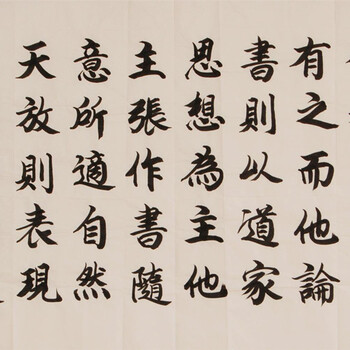 有之而他論
書則以道家
思想為主他
主張作書隨
意所適自然
天放則表現